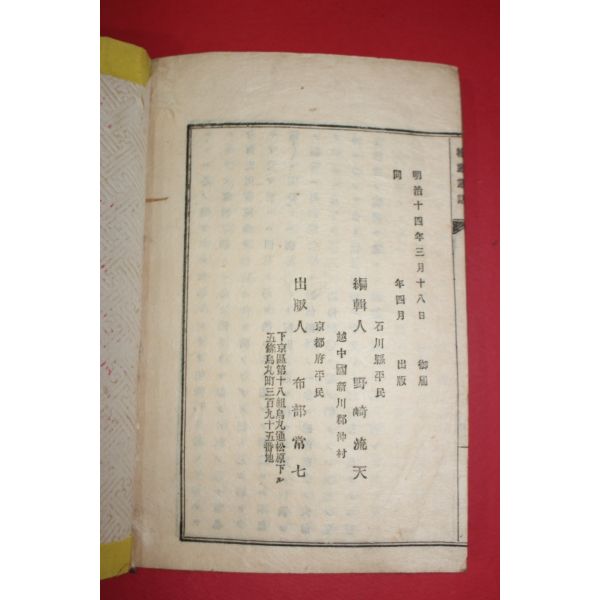 明治十四年三月十八日 御届
同 年四月 出版
石川縣平民
編輯人 野崎流天
越中國新川郡仲村
京都府平民
出版人 布部常七
下京區第十八組烏丸通松原下ル
五條烏丸町三百九十五番地